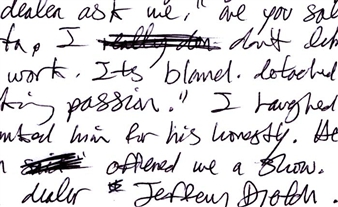 dealer ask me, "are you sat
I don't let
work. Its bland. detached
king passion." I laughed
him for his honesty. He
offered me a show.
dealer * Jeffrey Deitch.